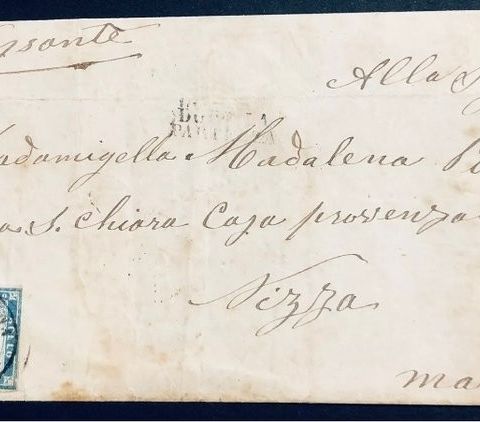 ssante
Alla S
adamigella Madalena
a S. Chiara Casa provenza
Nizza
ma
BOLLO